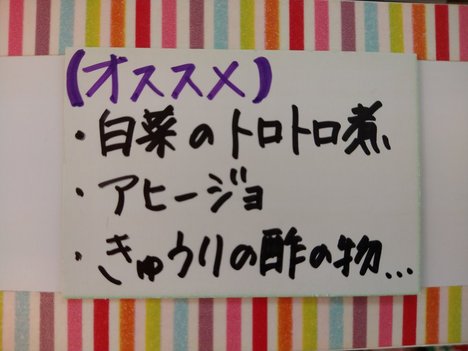 (オススメ)
・白菜のトロトロ煮
・アヒージョ
・きゅうりの酢の物...